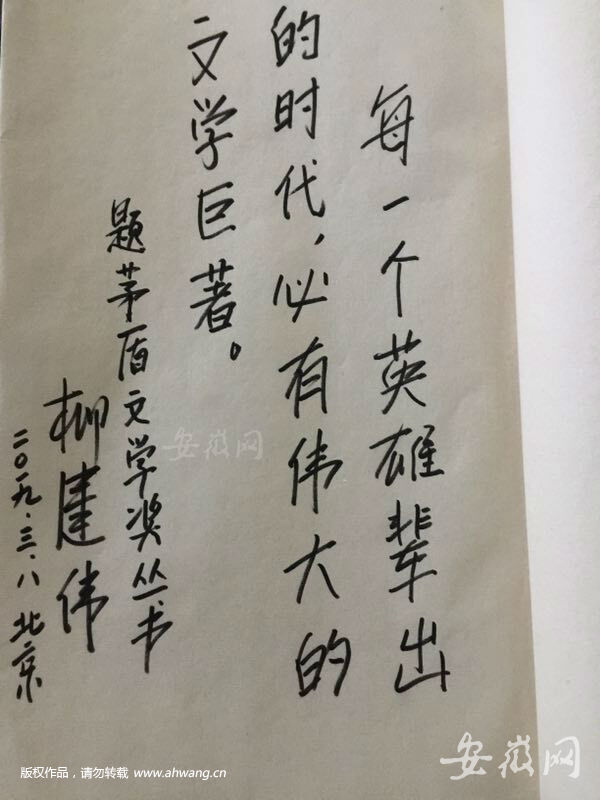 每一个英雄辈出
的时代,必有伟大的
文学巨著。
题茅盾文学奖丛书
柳建伟
二〇一九.三.八北京
安徽网
版权作品，请勿转载 www.ahwang.cn
安徽网